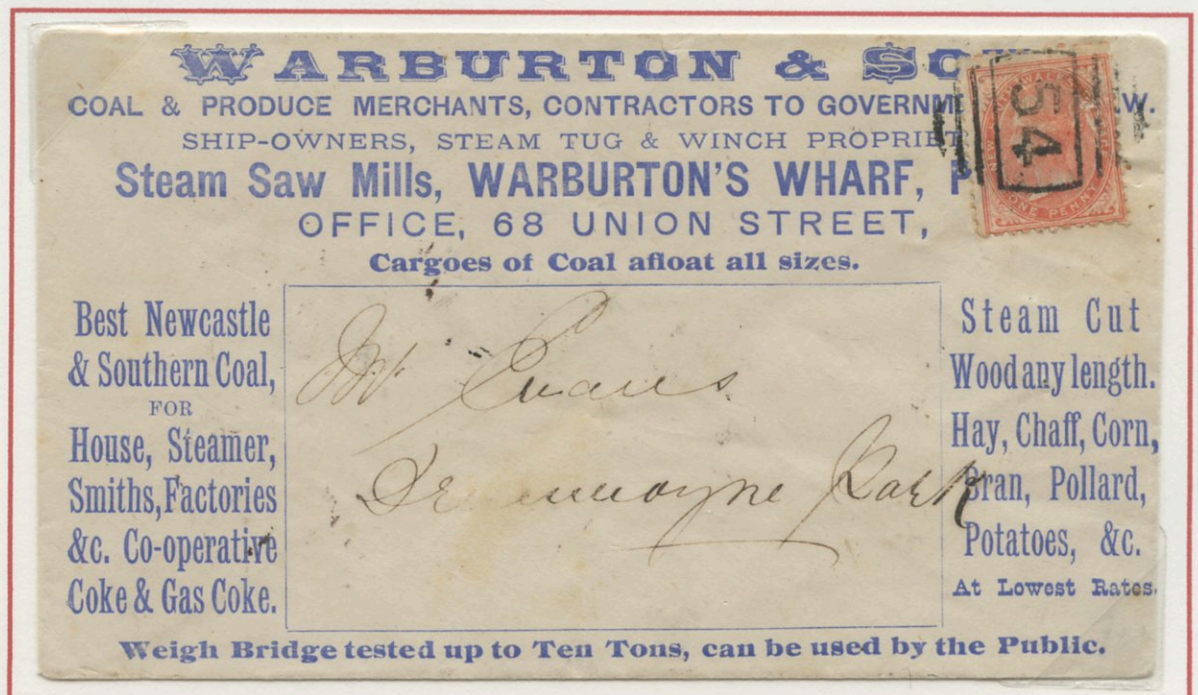 WARBURTON & SO
COAL & PRODUCE MERCHANTS, CONTRACTORS TO GOVERNM W.
SHIP-OWNERS, STEAM TUG & WINCH PROPRIET
Steam Saw Mills, WARBURTON'S WHARF, P
OFFICE, 68 UNION STREET,
Cargoes of Coal afloat all sizes.
NEW SOUTH WALES
54
ONE PENNY
Best Newcastle
& Southern Coal,
FOR
House, Steamer,
Smiths, Factories
&c. Co-operative
Coke & Gas Coke.
Mr Evans
Park
Steam Cut
Wood any length.
Hay, Chaff, Corn,
Bran, Pollard,
Potatoes, &c.
At Lowest Rates.
Weigh Bridge tested up to Ten Tons, can be used by the Public.